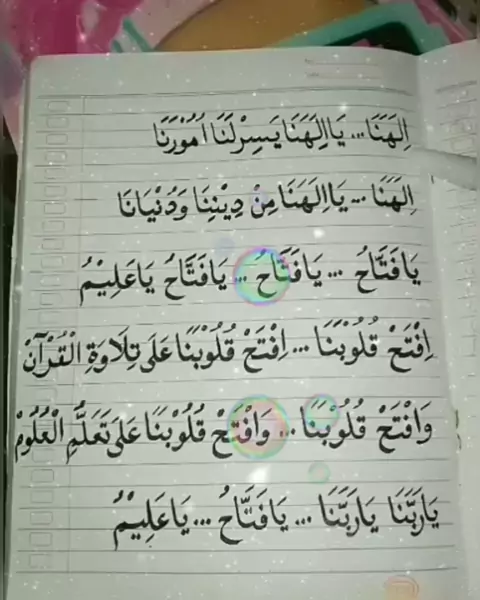 اِلٰهَنَا... يَااِلٰهَنَا يَسِرْلَنَا اُمُوْرَنَا
اِلٰهَنَا... يَااِلٰهَنَا مِنْ دِيْنِنَا وَدُنْيَانَا
يَافَتَّاحُ ... يَافَتَّاحُ ... يَافَتَّاحُ يَاعَلِيْمُ
اِفْتَحْ قُلُوْبَنَا ... اِفْتَحْ قُلُوْبَنَا عَلَى تِلَاوَةِ الْقُرْآنْ
وَافْتَحْ قُلُوْبَنَا ... وَافْتَحْ قُلُوْبَنَا عَلَى تَعَلُّمِ الْعُلُوْمْ
يَارَبَّنَا يَارَبَّنَا ... يَافَتَّاحُ ... يَاعَلِيْمُ